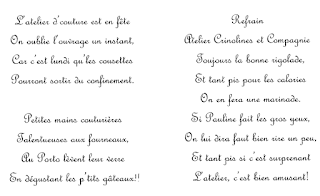 L'atelier d'couture est en fête
On oublie l'ouvrage un instant,
Car c'est lundi qu'les cousettes
Pourront sortir du confinement.
Petites mains couturières
Talentueuses aux fourneaux,
Au Porto lèvent leur verre
En dégustant les p'tits gâteaux!!
Refrain
Atelier Crinolines et Compagnie
Toujours la bonne rigolade,
Et tant pis pour les calories
On en fera une marinade.
Si Pauline fait les gros yeux,
On lui dira faut bien rire un peu,
Et tant pis si c'est surprenant
L'atelier, c'est bien amusant!